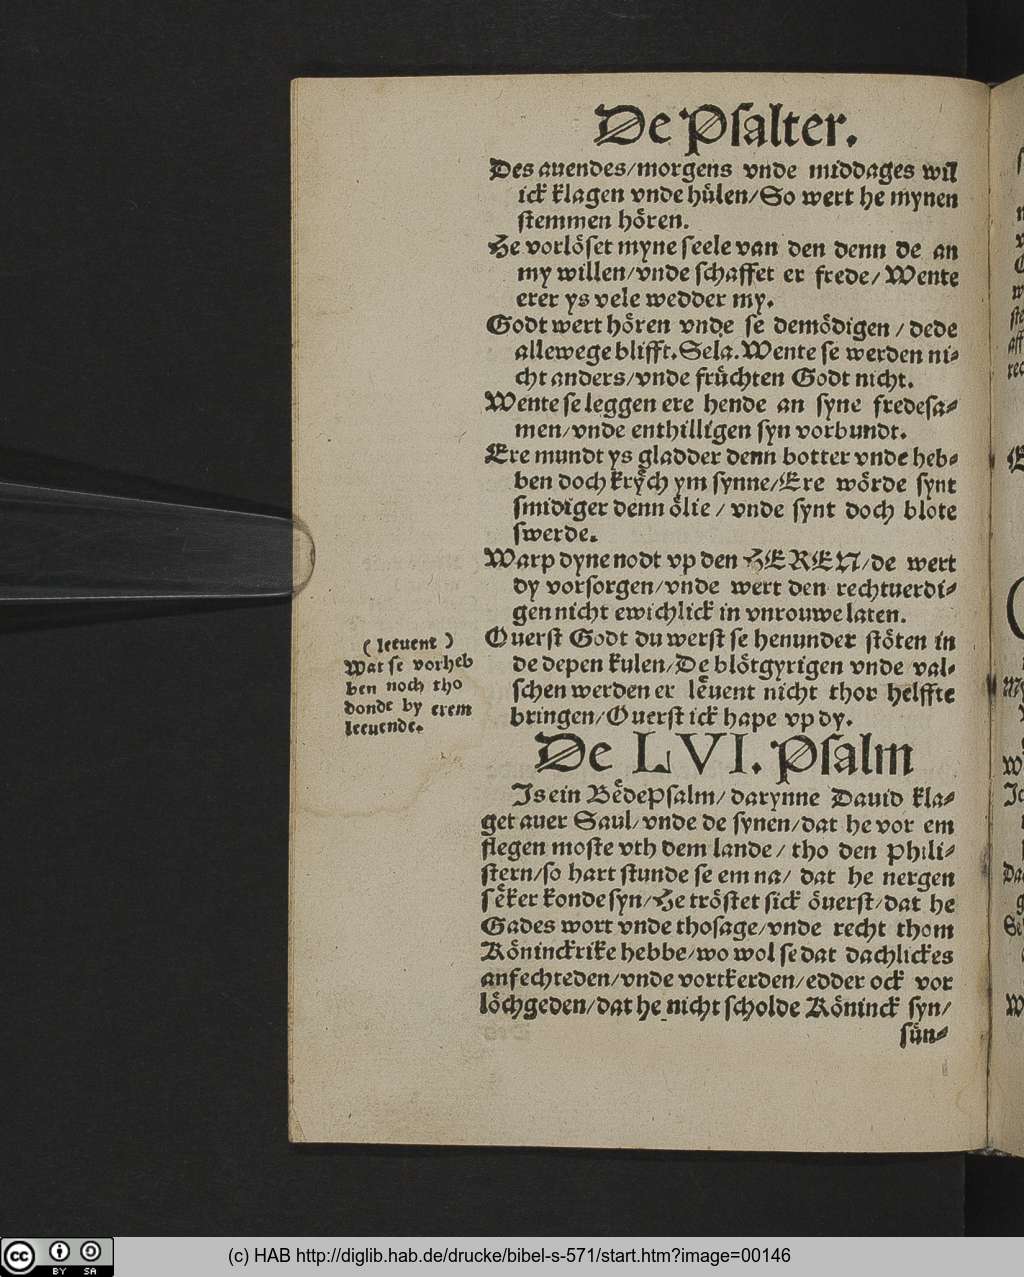 De Psalter.
Des auendes/morgens vnde middages wil
ick klagen vnde hůlen/So wert he mynen
stemmen hören.
He vorlöset myne seele van den denn de an
my willen/vnde schaffet er frede/Wente
erer ys vele wedder my.
Godt wert hören vnde se demödigen/dede
allewege blifft. Sela. Wente se werden ni-
cht anders/vnde früchten Godt nicht.
Wente se leggen ere hende an syne fredesa-
men/vnde enthilligen syn vorbundt.
Ere mundt ys gladder denn botter vnde heb-
ben doch krych ym synne/Ere wörde synt
smidiger denn ölie/vnde synt doch blote
swerde.
Warp dyne nodt vp den HEREN/de wert
dy vorsorgen/vnde wert den rechtuerdi-
gen nicht ewichlick in vnrouwe laten.
Ouerst Godt du werst se henunder stöten in
de depen kulen/De blötgyrigen vnde val-
schen werden er leͤuent nicht thor helffte
bringen/Ouerst ick hape vp dy.
(leeuent)
Wat se vorheb
ben noch tho
donde by erem
leeuende.
De LVI. Psalm
Is ein BeͤdePsalm/darynne Dauid kla-
get auer Saul/vnde de synen/dat he vor em
flegen moste vth dem lande/tho den Phili-
stern/so hart stunde se em na/dat he nergen
seͤker konde syn/He tröstet sick öuerst/dat he
Gades wort vnde thosage/vnde recht thom
Köninckrike hebbe/wo wol se dat dachlickes
anfechteden/vnde vortkerden/edder ock vor
löchgeden/dat he nicht scholde Köninck syn/
sün-
(c) HAB http://diglib.hab.de/drucke/bibel-s-571/start.htm?image=00146
cc
BY SA